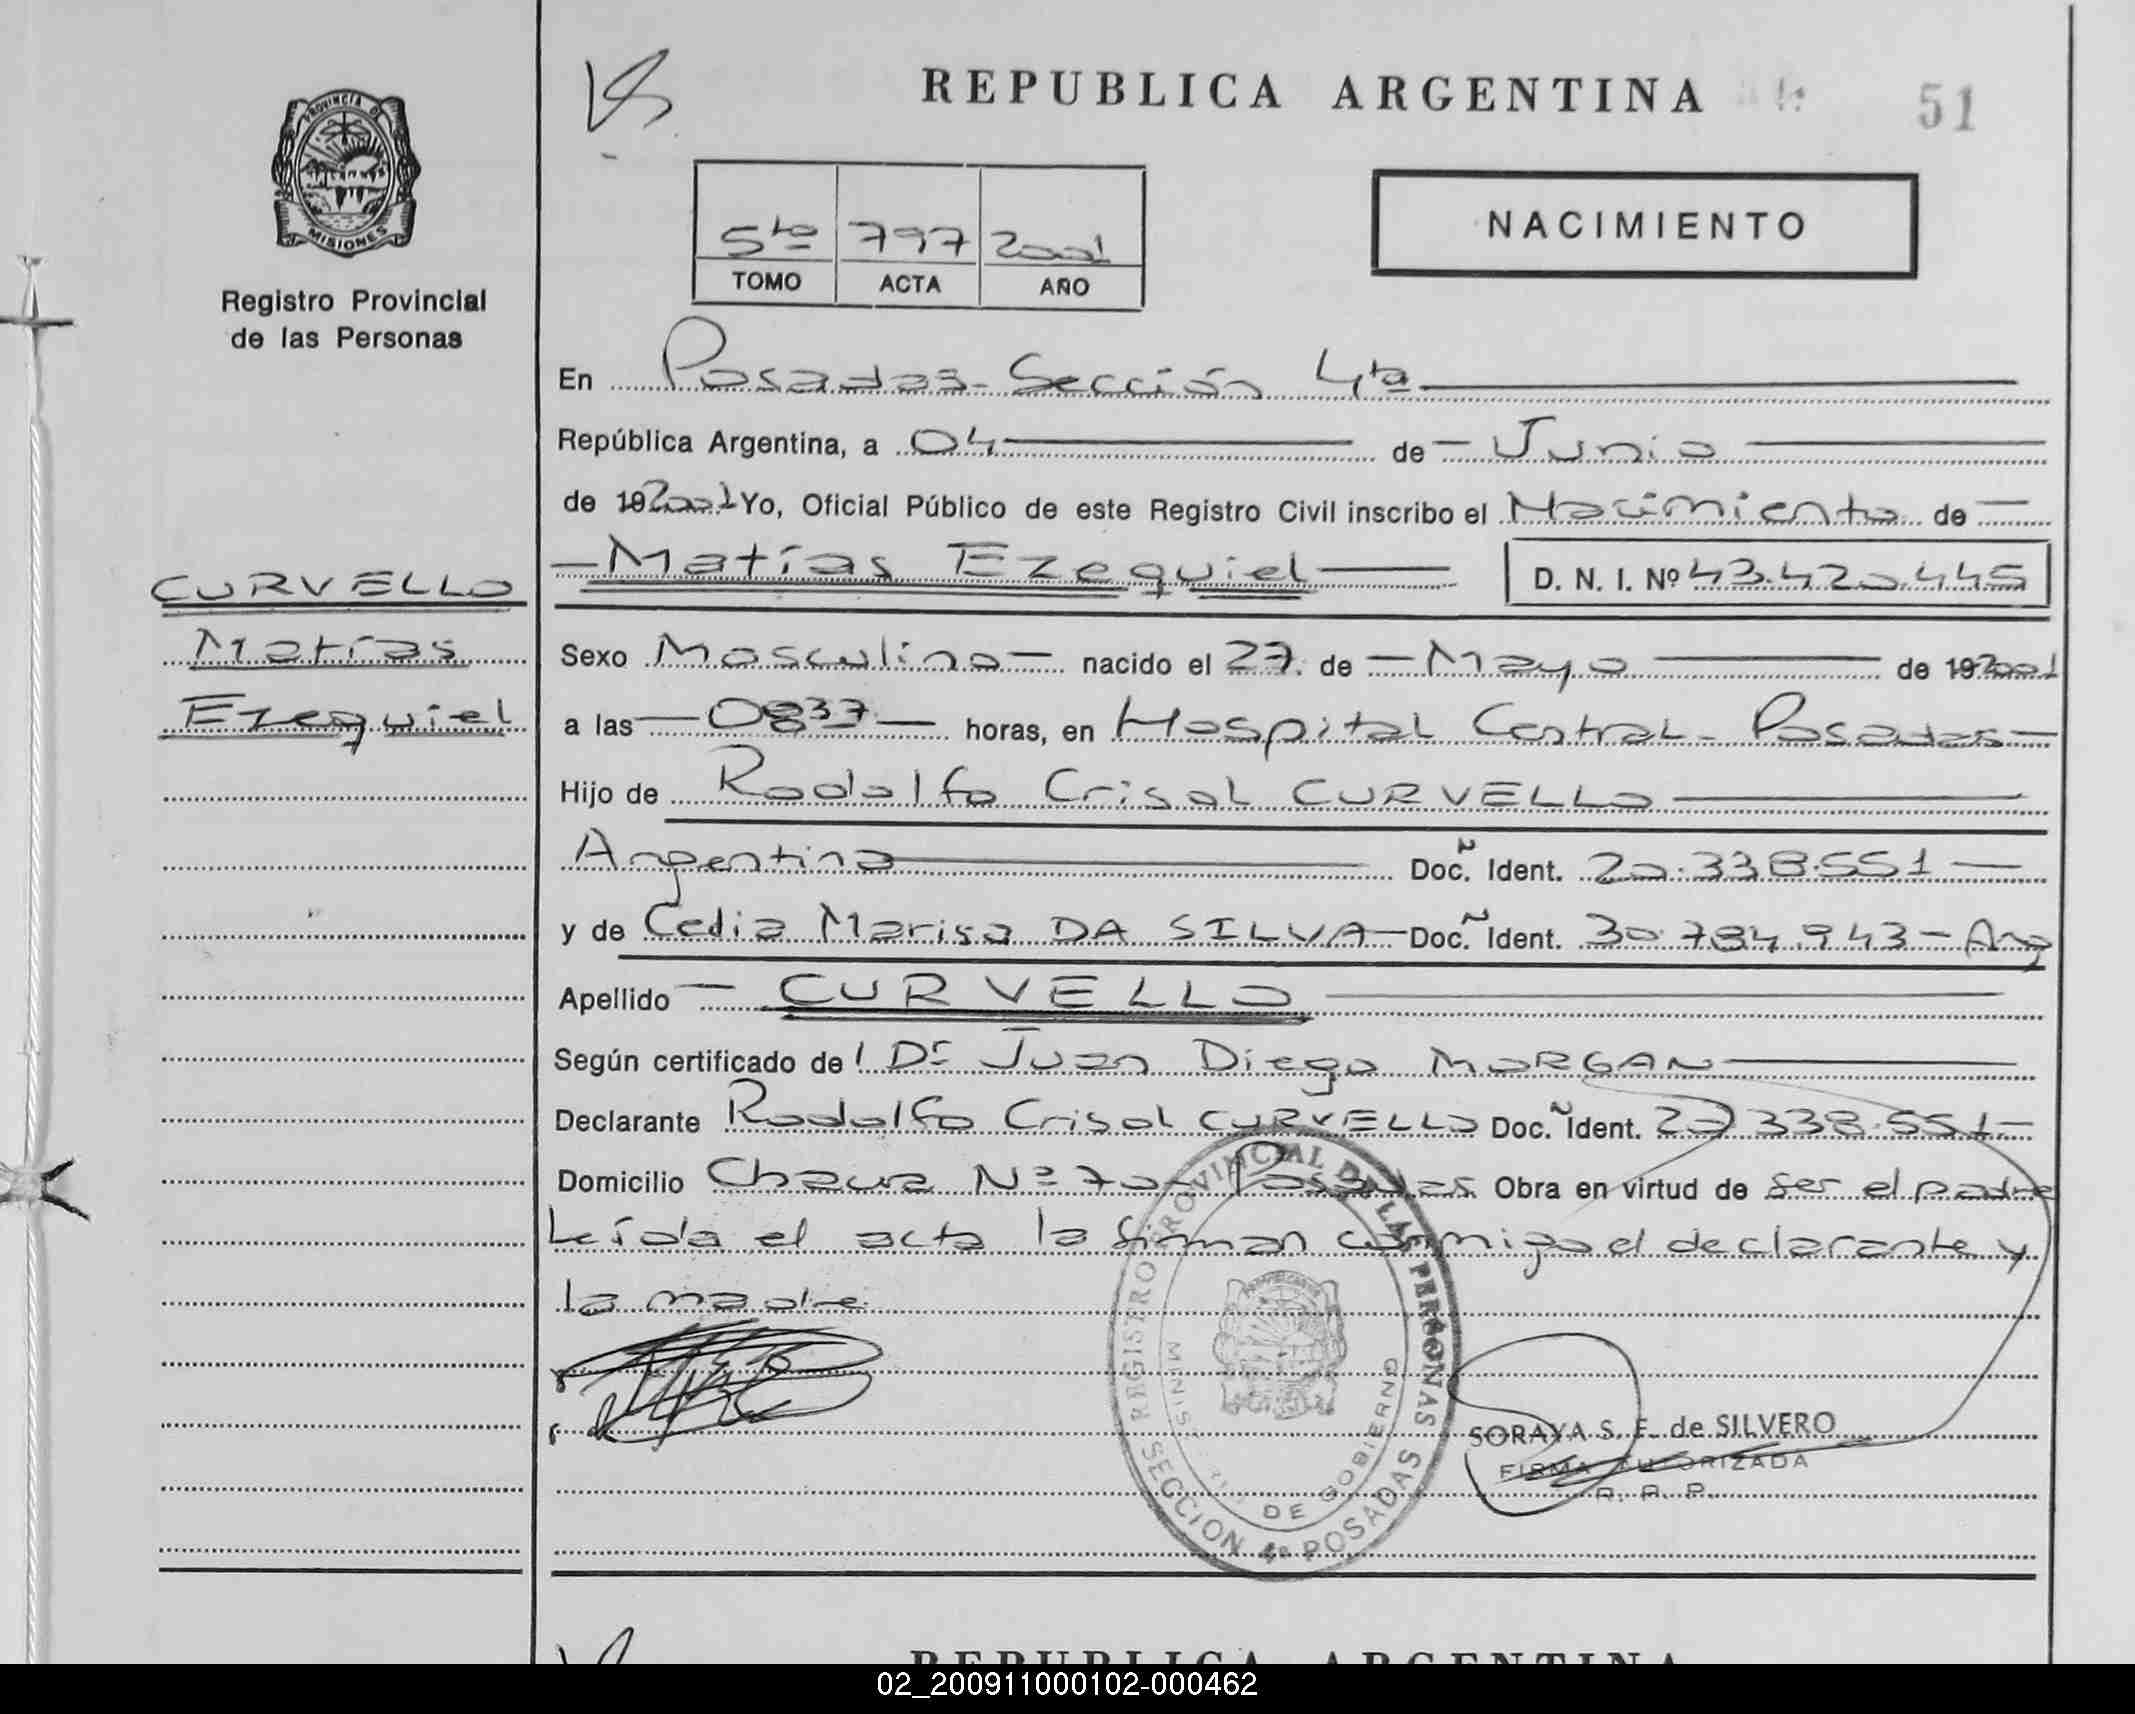 REPUBLICA ARGENTINA
51
PROVINCIA DE
MISIONES
Registro Provincial
de las Personas
5to 797 2001
TOMO ACTA AÑO
NACIMIENTO
En Posadas - Sección 4ta
República Argentina, a 04 de Junio
de 19 2001 Yo, Oficial Público de este Registro Civil inscribo el Nacimiento de
Matías Ezequiel D. N. I. Nº 43.420.445
CURVELLO
Matías
Ezequiel
Sexo Masculino nacido el 27 de Mayo de 19 2001
a las 0837 horas, en Hospital Central - Posadas
Hijo de Rodolfo Crisol CURVELLO
Argentina Doc. Ident. 20.338.551
y de Celia Marisa DA SILVA Doc. Ident. 30.784.943 - Arg
Apellido CURVELLO
Según certificado de l Dr Juan Diego MORGAN
Declarante Rodolfo Crisol CURVELLO Doc. Ident. 20 338.551
Domicilio Nº 70 - Posadas Obra en virtud de ser el padre
Leída el acta la firman conmigo el declarante y
la madre
REGISTRO PROVINCIAL DE LAS PERSONAS
MINISTERIO DE GOBIERNO
SECCION 4a POSADAS
SORAYA S. F. de SILVERO
FIRMA AUTORIZADA
R. P. P.
REPUBLICA ARGENTINA
02_200911000102-000462